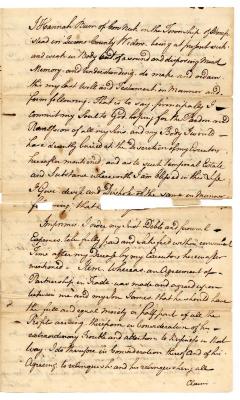 I Hannah of Cow Neck in the Township of Hemp
stead in Queens County Widow, being at present sick
and weak in Body but of a sound and disposing Mind
Memory and Understanding do make and ordain
this my last Will and Testament in Manner and
form following. That is to say, principally I
commit my Soul to God hoping for the Pardon and
Remission of all my Sins and my Body I
have decently buried at the discretion of my Executors
hereafter mentioned, and as to such Temporal Estate
and Substance wherewith I am blessed in this Life
I Give devise and Dispose of the same in Manner
following that
Imprimis. I order my just Debts and funeral
Expences to be fully paid and satisfied within convenient
Time after my Decease by my Executors hereafter
mentioned - Item. Whereas an Agreement of
Partnership in Trade was made and agreed
between me and my Son James that he should have
the just and equal moiety or half part of all the
Profits arising therefrom in Consideration of his
extraordinary Trouble and attention to Business in that
Way. I do therefore in Consideration thereof and of his
Agreeing to relinquish and his relinquishing all
Claim